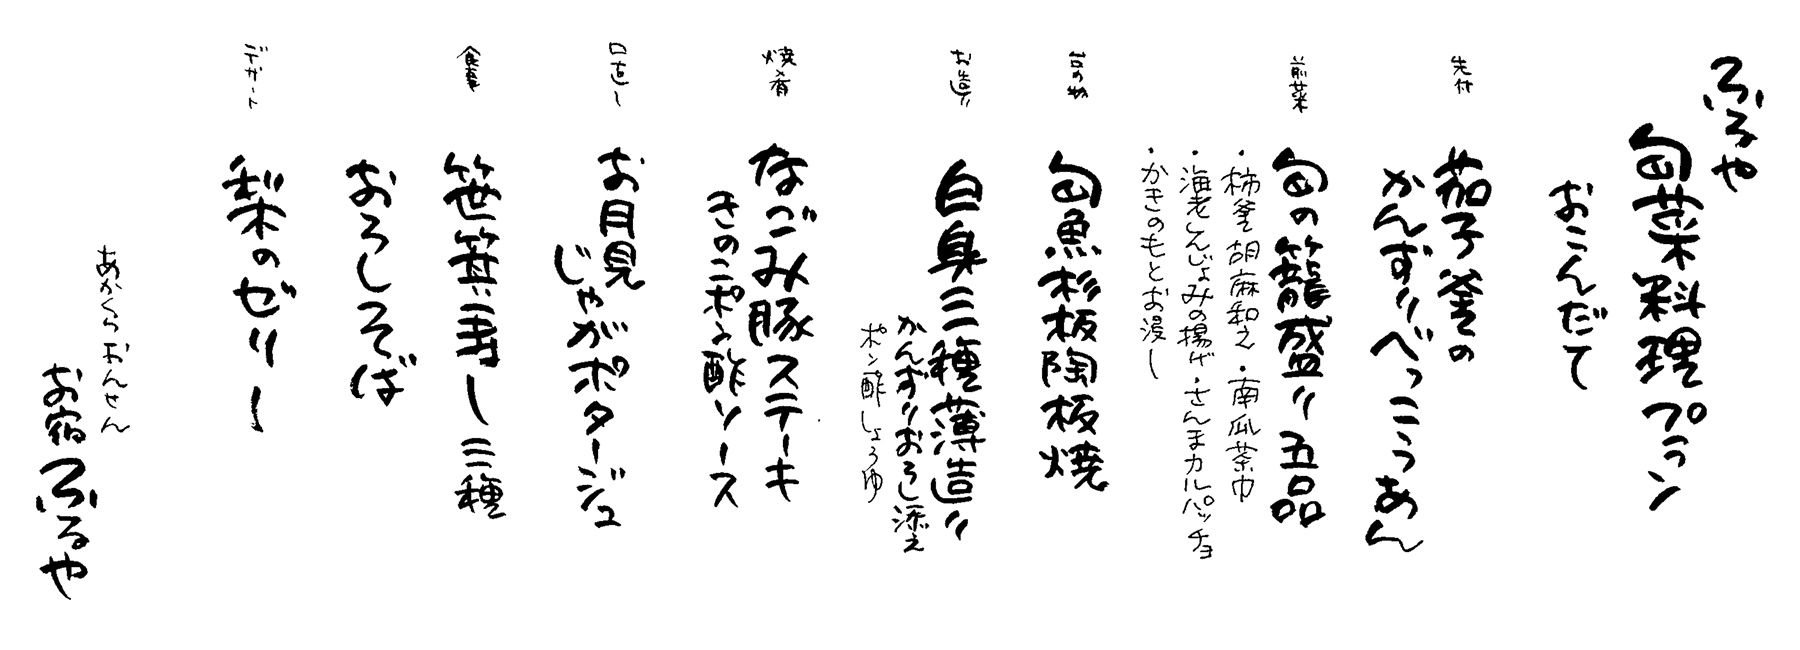 ふるや
旬菜料理プラン
おこんだて
先付
茄子釜の
かんずりべっこうあん
前菜
旬の籠盛り五品
・柿釜胡麻和え・南瓜茶巾
・海老しんじょみの揚げ・さんまカルパッチョ
・かきのもとお浸し
台の物
旬魚杉板陶板焼
お造り
白身三種薄造り
かんずりおろし添え
ポン酢しょうゆ
焼肴
なごみ豚ステーキ
きのこポン酢ソース
口直し
お月見
じゃがポタージュ
食事
笹箕寿し三種
おろしそば
デザート
梨のゼリー
あかくらおんせん
お宿ふるや